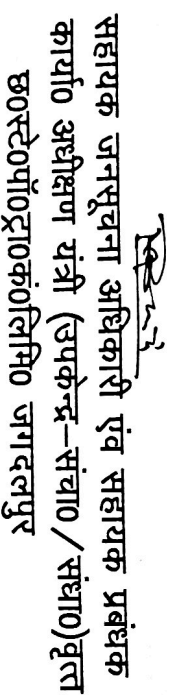 सहायक जनसूचना अधिकारी एंव सहायक प्रबंधक
कार्या0 अधीक्षण यंत्री (उपकेन्द्र–संचा0/संधा0)वृत्त
छ0स्टे0पॉ0ट्रा0कं0लिमि0 जगदलपुर